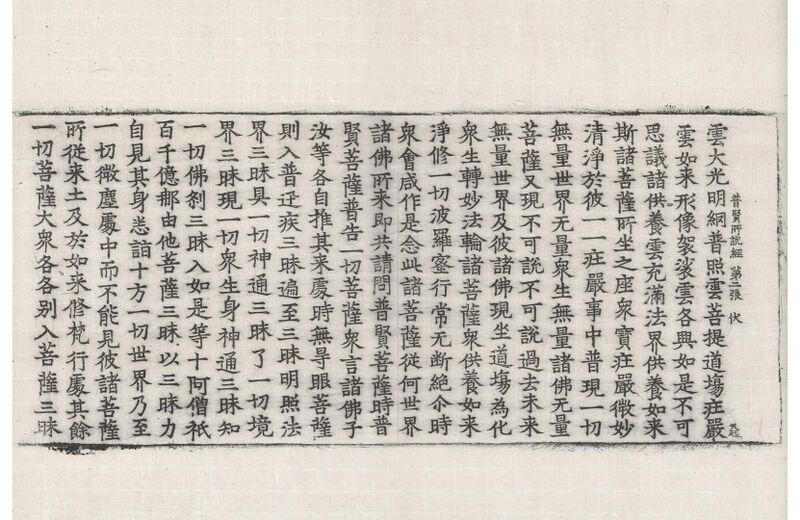 雲大光明網普照雲菩提道塲荘嚴
普賢所說經 第二張 伏
雲如来形像袈裟雲各興如是不可
思議諸供養雲充滿法界供養如来
斯諸菩薩所坐之座衆寶荘嚴微妙
清淨於彼一一荘嚴事中普現一切
無量世界无量衆生無量諸佛无量
菩薩又現不可說不可說過去未来
無量世界及彼諸佛現坐道塲為化
衆生轉妙法輪諸菩薩衆供養如来
淨修一切波羅蜜行常无断絶尒時
衆會咸作是念此諸菩薩從何世界
諸佛所来即共請問普賢菩薩時普
賢菩薩普告一切菩薩衆言諸佛子
汝等各自推其来處時無㝵眼菩薩
則入普迅疾三昧遍至三昧明照法
界三昧具一切神通三昧了一切境
界三昧現一切衆生身神通三昧知
一切佛刹三昧入如是等十阿僧祇
百千億那由他菩薩三昧以三昧力
自見其身悉詣十方一切世界乃至
一切微塵處中而不能見彼諸菩薩
所從来土及於如来修梵行處其餘
一切菩薩大衆各各別入菩薩三昧